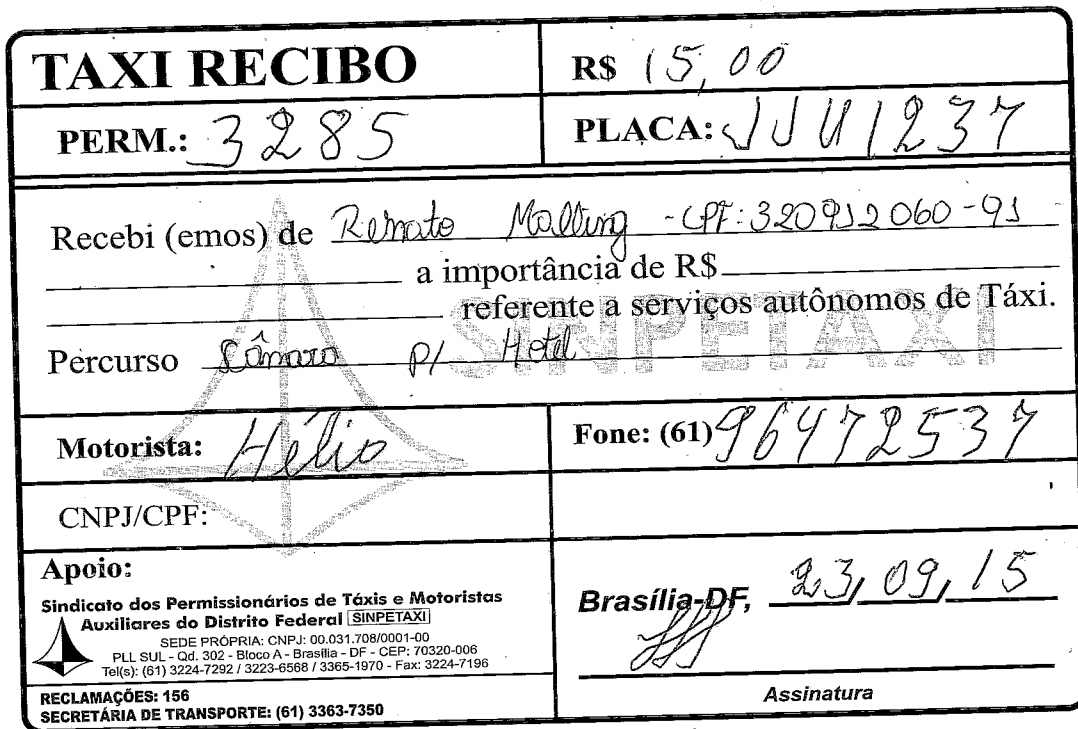 TAXI RECIBO
R$ 15,00
PERM.: 3285
PLACA: JJU1237
Recebi (emos) de Renato Molling - CPF: 320912060-91
a importância de R$
referente a serviços autônomos de Táxi.
SINPETAXI
Percurso Câmara p/ Hotel
Motorista: Hélio
Fone: (61) 96472537
CNPJ/CPF:
Apoio:
Sindicato dos Permissionários de Táxis e Motoristas
Auxiliares do Distrito Federal SINPETAXI
SEDE PRÓPRIA: CNPJ: 00.031.708/0001-00
PLL SUL - Qd. 302 - Bloco A - Brasília - DF - CEP: 70320-006
Tel(s): (61) 3224-7292 / 3223-6568 / 3365-1970 - Fax: 3224-7196
RECLAMAÇÕES: 156
SECRETÁRIA DE TRANSPORTE: (61) 3363-7350
Brasília-DF, 23/09/15
Assinatura